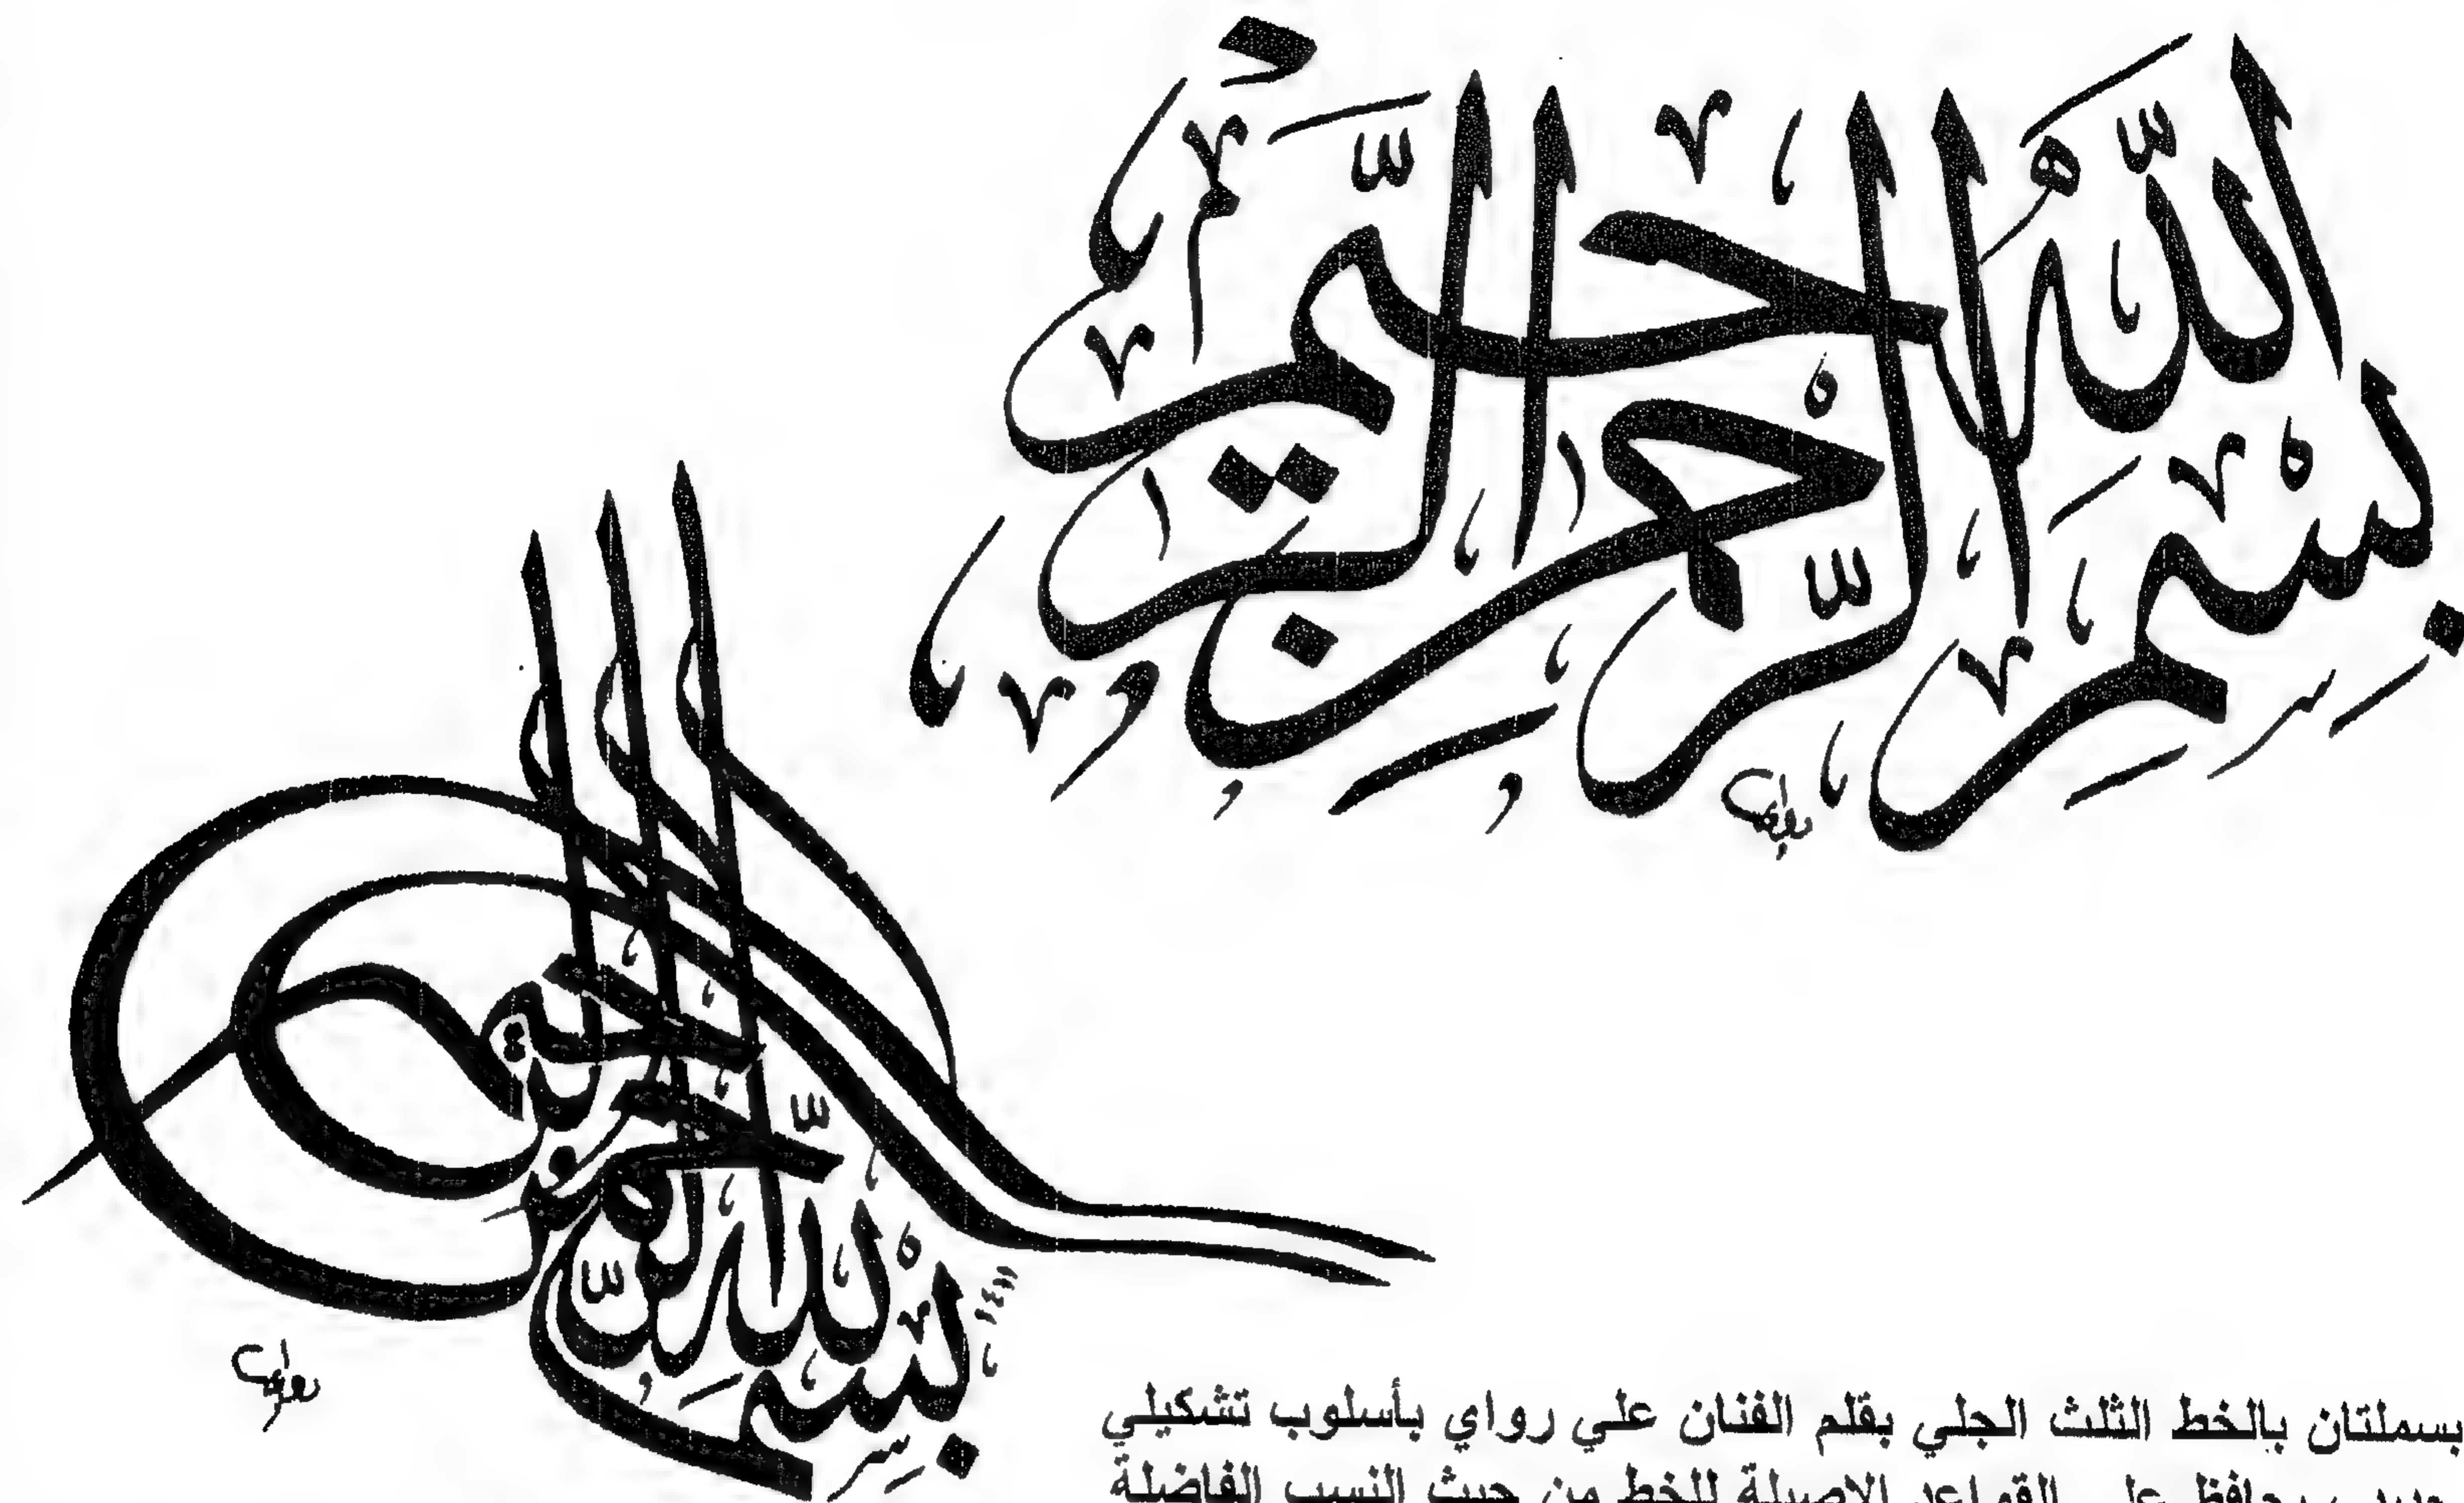 بسم الله الرحمن الرحيم
بسم الله الرحمن الرحيم
بسملتان بالخط الثلث الجلي بقلم الفنان علي رواي بأسلوب تشكيلي
يحافظ على القواعد الاصيلة للخط من حيث النسب الفاضلة